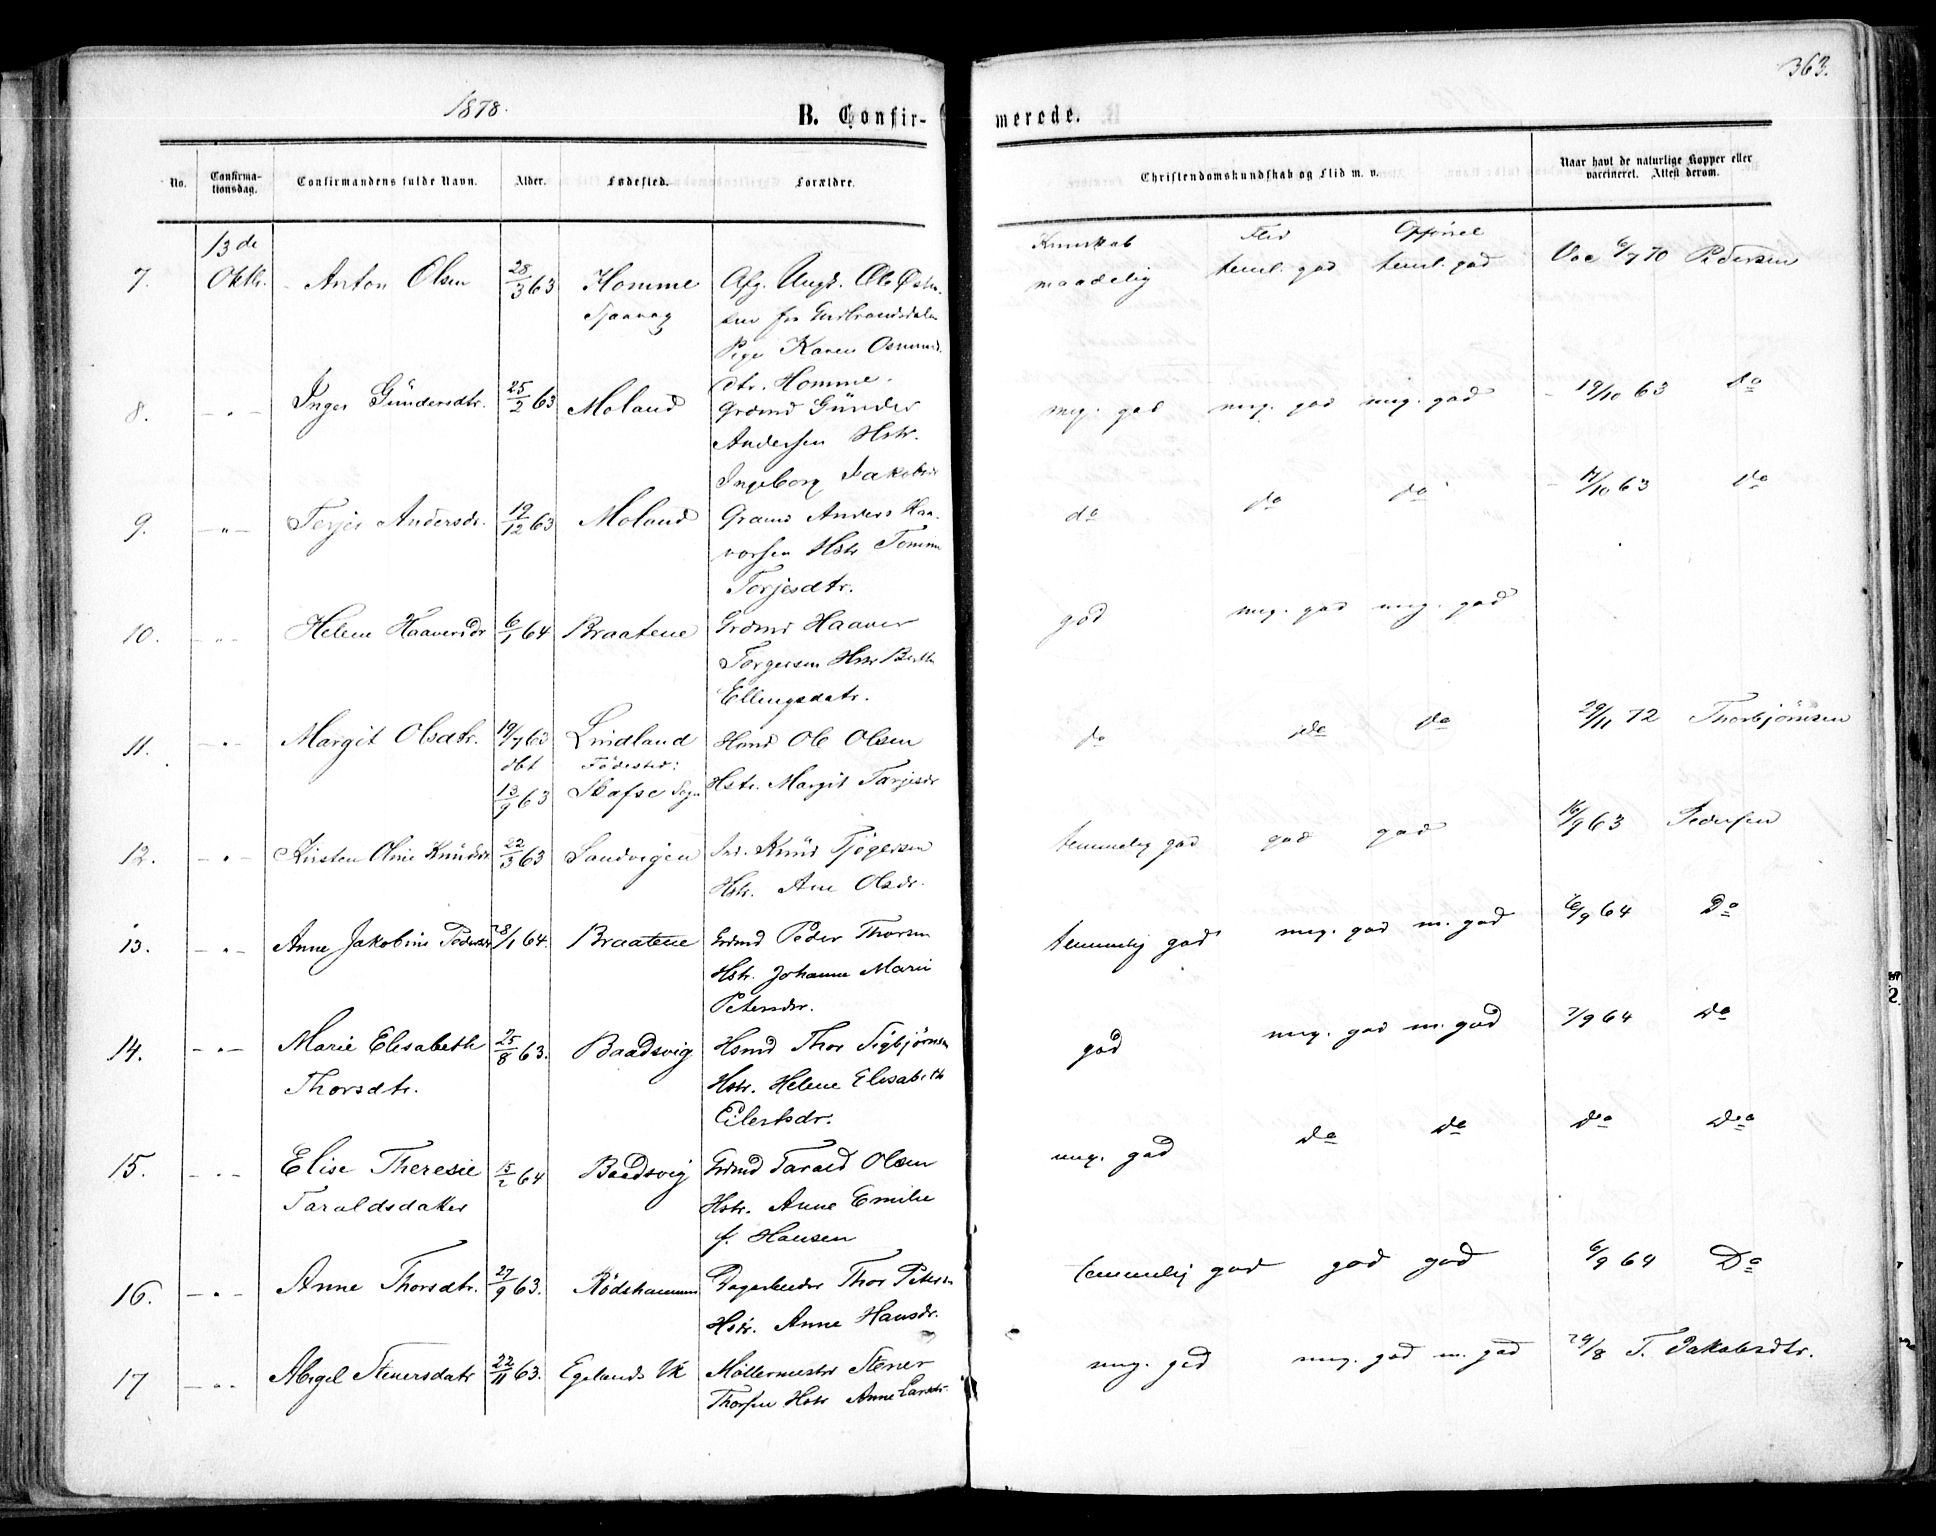 363.
1878.
B. Confir- merede.
No. Confirma-tionsdag. Confirmandens fulde Navn. Alder. Fødested. Forældre. Christendomskundskab og Flid m. v. Naar havt de naturlige Kopper eller vaccineret. Attest derom.
13 de Kundskab Flid Opførsel
7. Oktbr. Anton Olsen 28/3 63 Homme Afg. Ungk. Ole Østen- maadelig teml. god teml. god Vac 6/7 70 Pedersen
Tjaavag sen fra Gudbrandsdalen
Pige Karen Osmund
dtr. Homme.
8. - " - Inger Gundersdtr. 25/2 63 Moland Grdmd Günder meg. god meg. god meg. god - 19/10 63 do
Andersen Hstr.
Ingeborg Jakobsdr
9. - " - Terjer Andersdr. 19/12 63 Moland Grdmd Anders Haa- do do do - 17/10 63 do
vorsen Hstr Tomine
Torjesdtr.
10. - " - Helene Haaversdr 6/1 64 Braatene Grdmd Haaver god meg. god meg. god
Torgersen Hstr Berthe
Ellingsdatr.
11. - " - Margit Olsdtr. 19/7 63 Lindland Hsmd Ole Olsen do do do 29/11 72 Thorbjørnsen
dbt Fødested:
13/9 63 Skafse Sogn Hstr. Margit Tarjesdr
12. - " - Kirsten Oline Knudsdr 22/3 63 Sandvigen Ind. Knud Tjøgersen temmelig god god god 16/9 63 Pedersen
Hstr. Ane Olsdr.
13. - " - Anne Jakobine Pedersdr 28/1 64. Braatene Grdmd Peder Thorsen temmelig god meg. god m. god 6/9 64 Do
Hstr. Johanne Marie
Petersdr.
14. - " - Marie Elisabeth 25/8 63. Baadsvig Hsmd Thor Sigbjørnsen god meg. god m. god 7/9 64 do
Thorsdtr. Hstr. Helene Elisabeth
Eilertsdr.
15. - " - Elise Theresie 15/2 64 Baadsvig Grdmd Tarald Olsen meg. god do do do do
Taraldsdatter Hstr. Anne Emilie
f. Hansen
16. - " - Anne Thorsdtr. 27/9 63. Rødshammen Dagarbeider Thor Petersen temmelig god god god 6/9 64 Do
Hstr. Anne Hansdr.
17 - " - Abigel Stenersdatr 22/11 63. Egelands Vk Møllermester Stener meg. god meg. god m. god 29/8 T. Jakobsdtr.
Thorsen Hstr Anne Larsdtr.